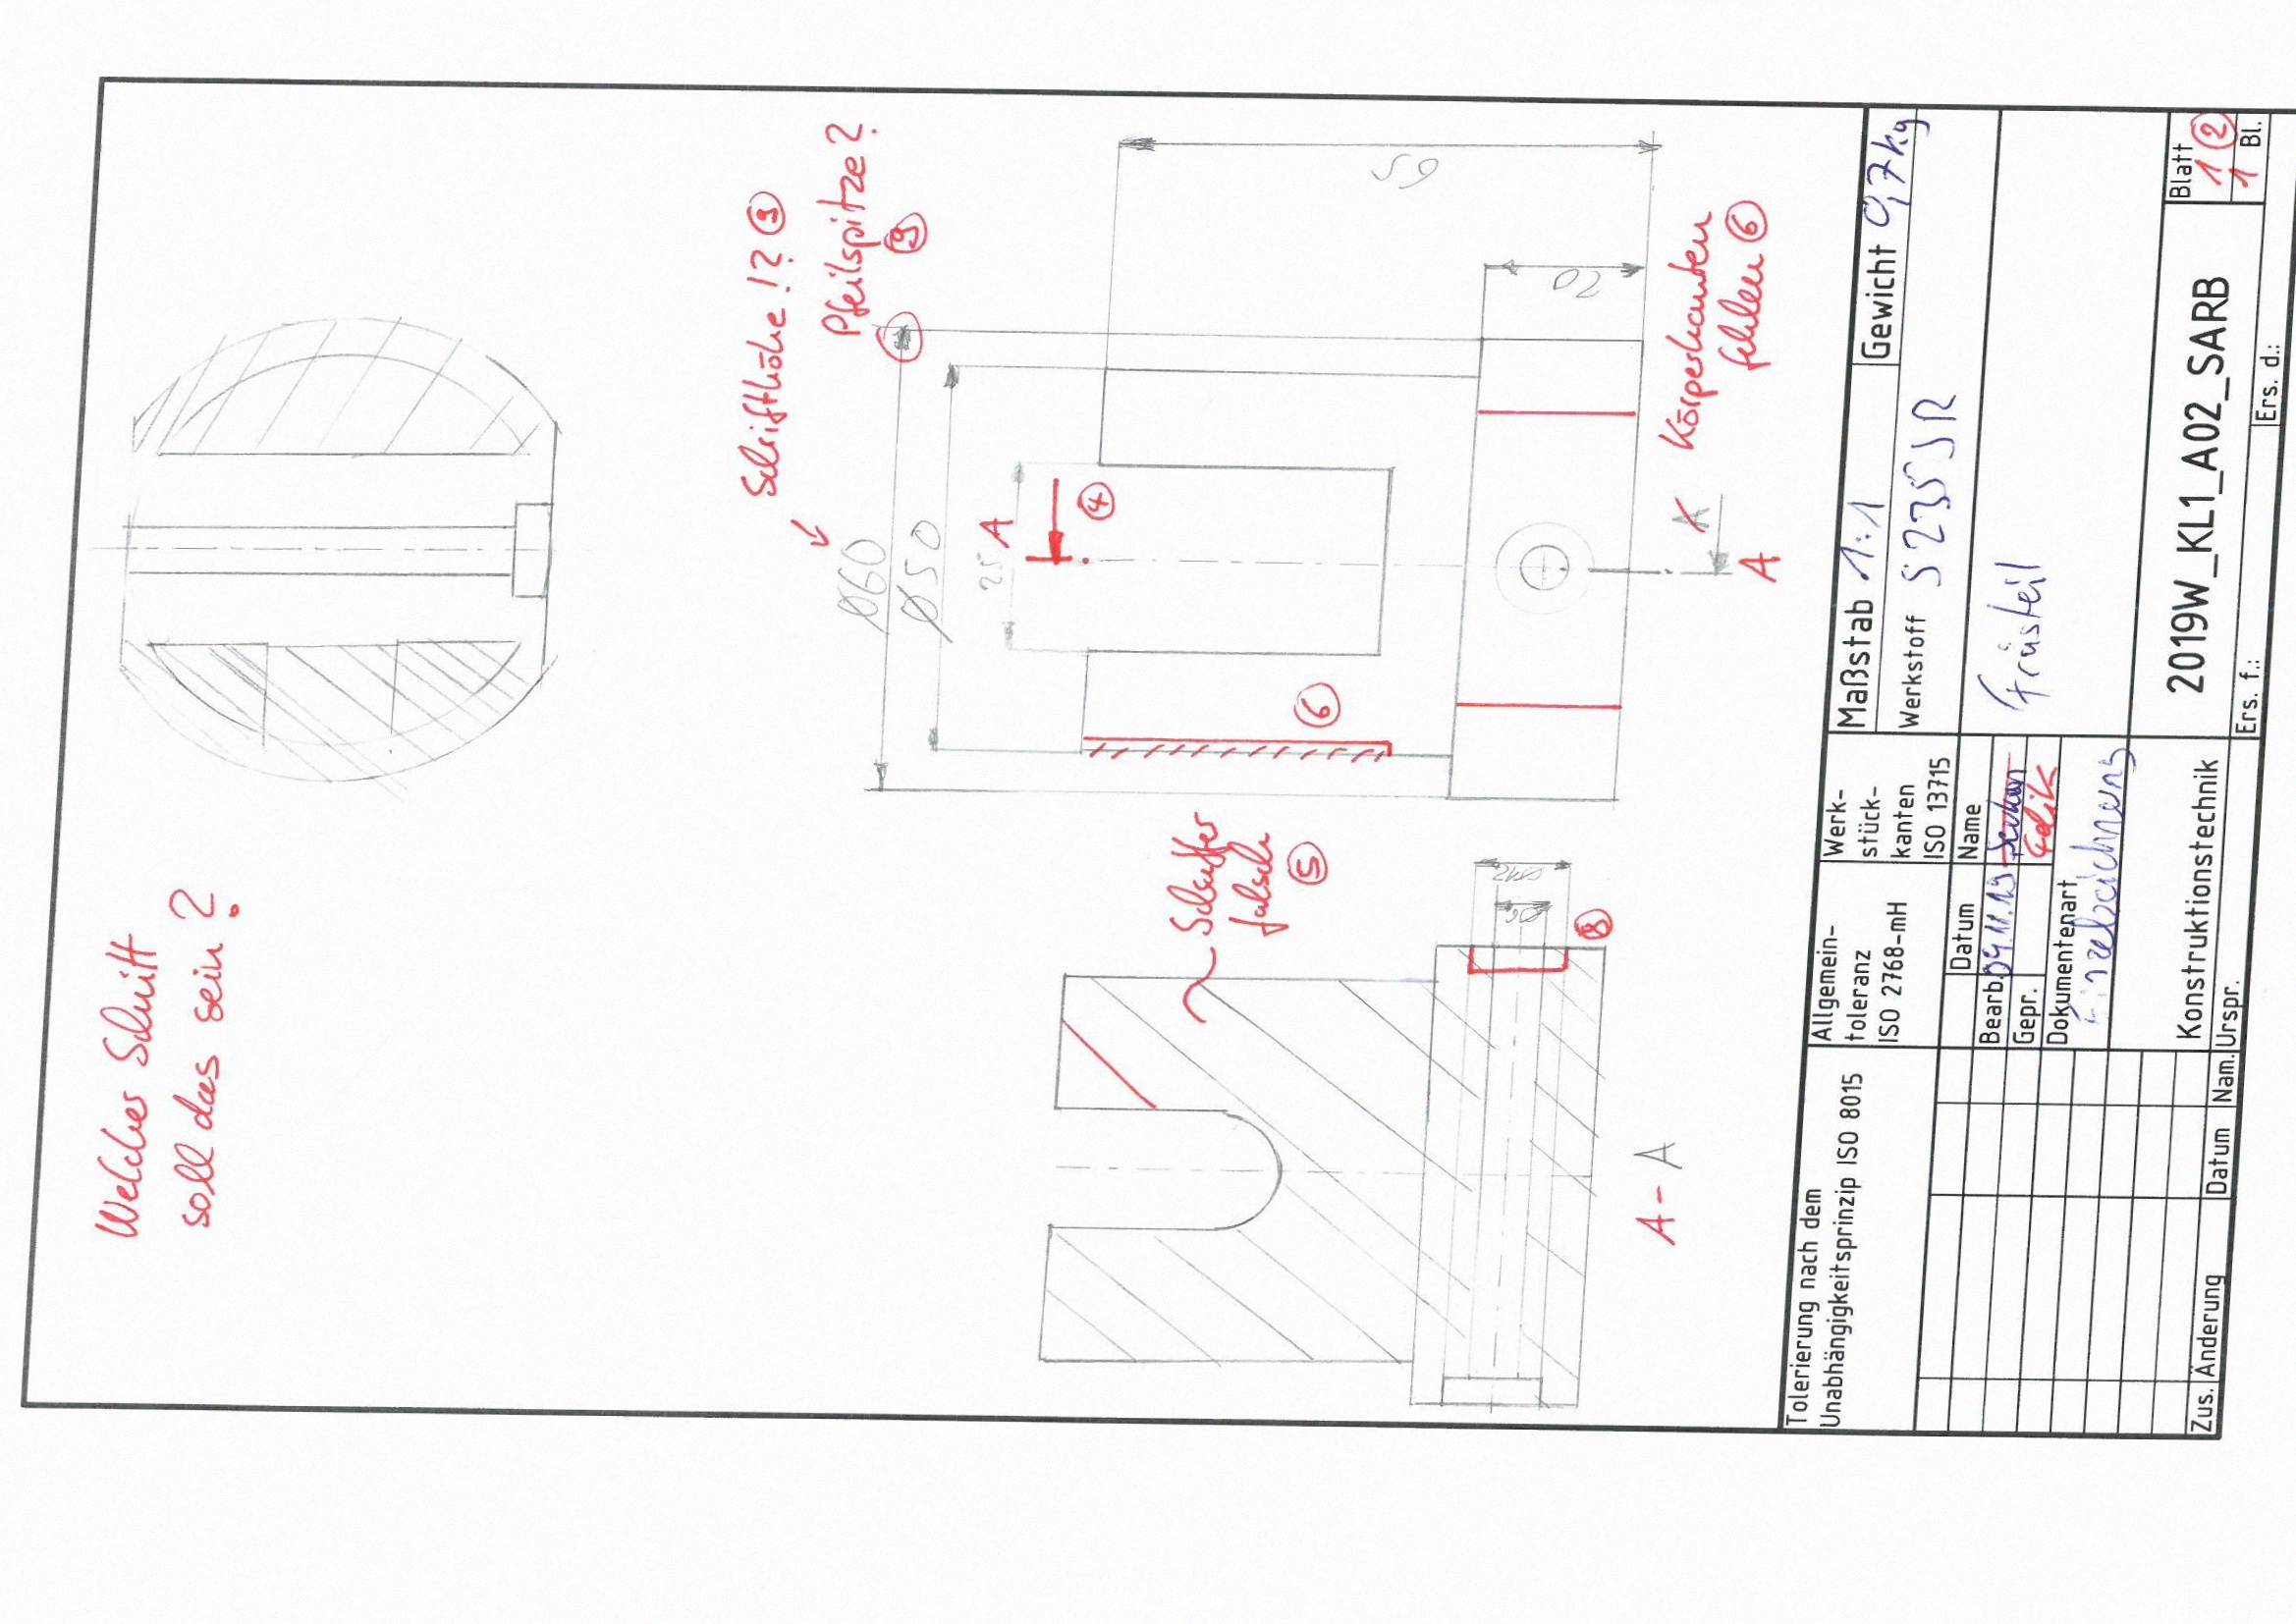 Welcher Schnitt
soll das sein?
Schrifthöhe !? 3
Pfeilspitze?
9
Ø60
Ø50
25
A
4
65
20
6
Körperkanten
fehlen 6
A
A
Schraffur
falsch
5
Ø12
Ø6
8
A - A
Tolerierung nach dem
Unabhängigkeitsprinzip ISO 8015
Allgemein-
toleranz
ISO 2768-mH
Werk-
stück-
kanten
ISO 13715
Maßstab 1:1
Gewicht 0,7kg
Werkstoff S235JR
Datum
Name
Bearb. 04.11.19
Gepr.
Dokumentenart
Einzelzeichnung
Frästeil
Konstruktionstechnik
2019W_KL1_A02_SARB
Blatt
1 2
1 Bl.
Zus. Änderung
Datum
Nam.
Urspr.
Ers. f.:
Ers. d.: